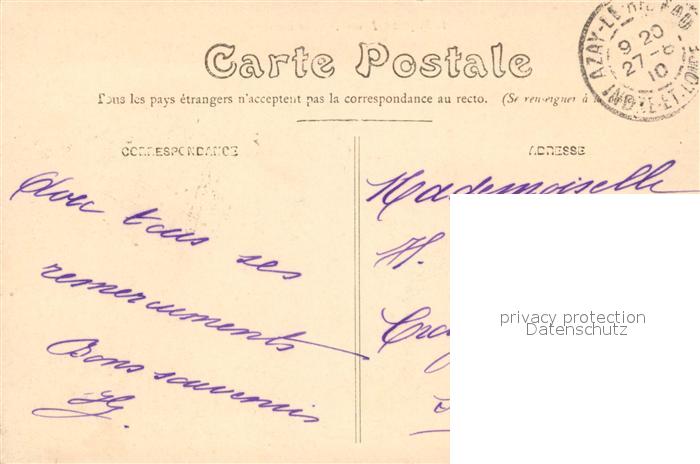 Carte Postale
Tous les pays étrangers n'acceptent pas la correspondance au recto. (Se renseigner à
AZAY-LE-RIDEAU
9 20
27-6
10
INDRE-ET-LOIRE
CORRESPONDANCE
ADRESSE
Avec tous ses
remerciements
Bons souvenirs
Mademoiselle
H.
privacy protection
Datenschutz